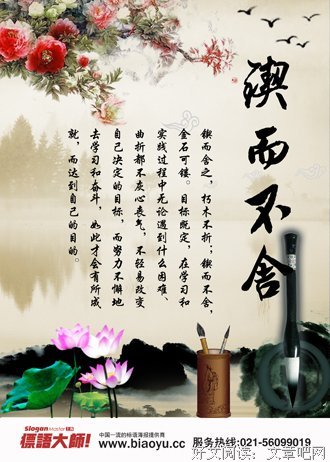 锲而不舍
锲而舍之，朽木不折；锲而不舍，
金石可镂。目标既定，在学习和
实践过程中无论遇到什么困难、
曲折都不灰心丧气，不轻易改变
自己决定的目标，而努力不懈地
去学习和奋斗，如此才会有所成
就，而达到自己的目的。
Slogan Master
標語大師!
中国一流的标语海报提供商
www.biaoyu.cc 服务热线:021-56099019
好文阅读：文章吧网